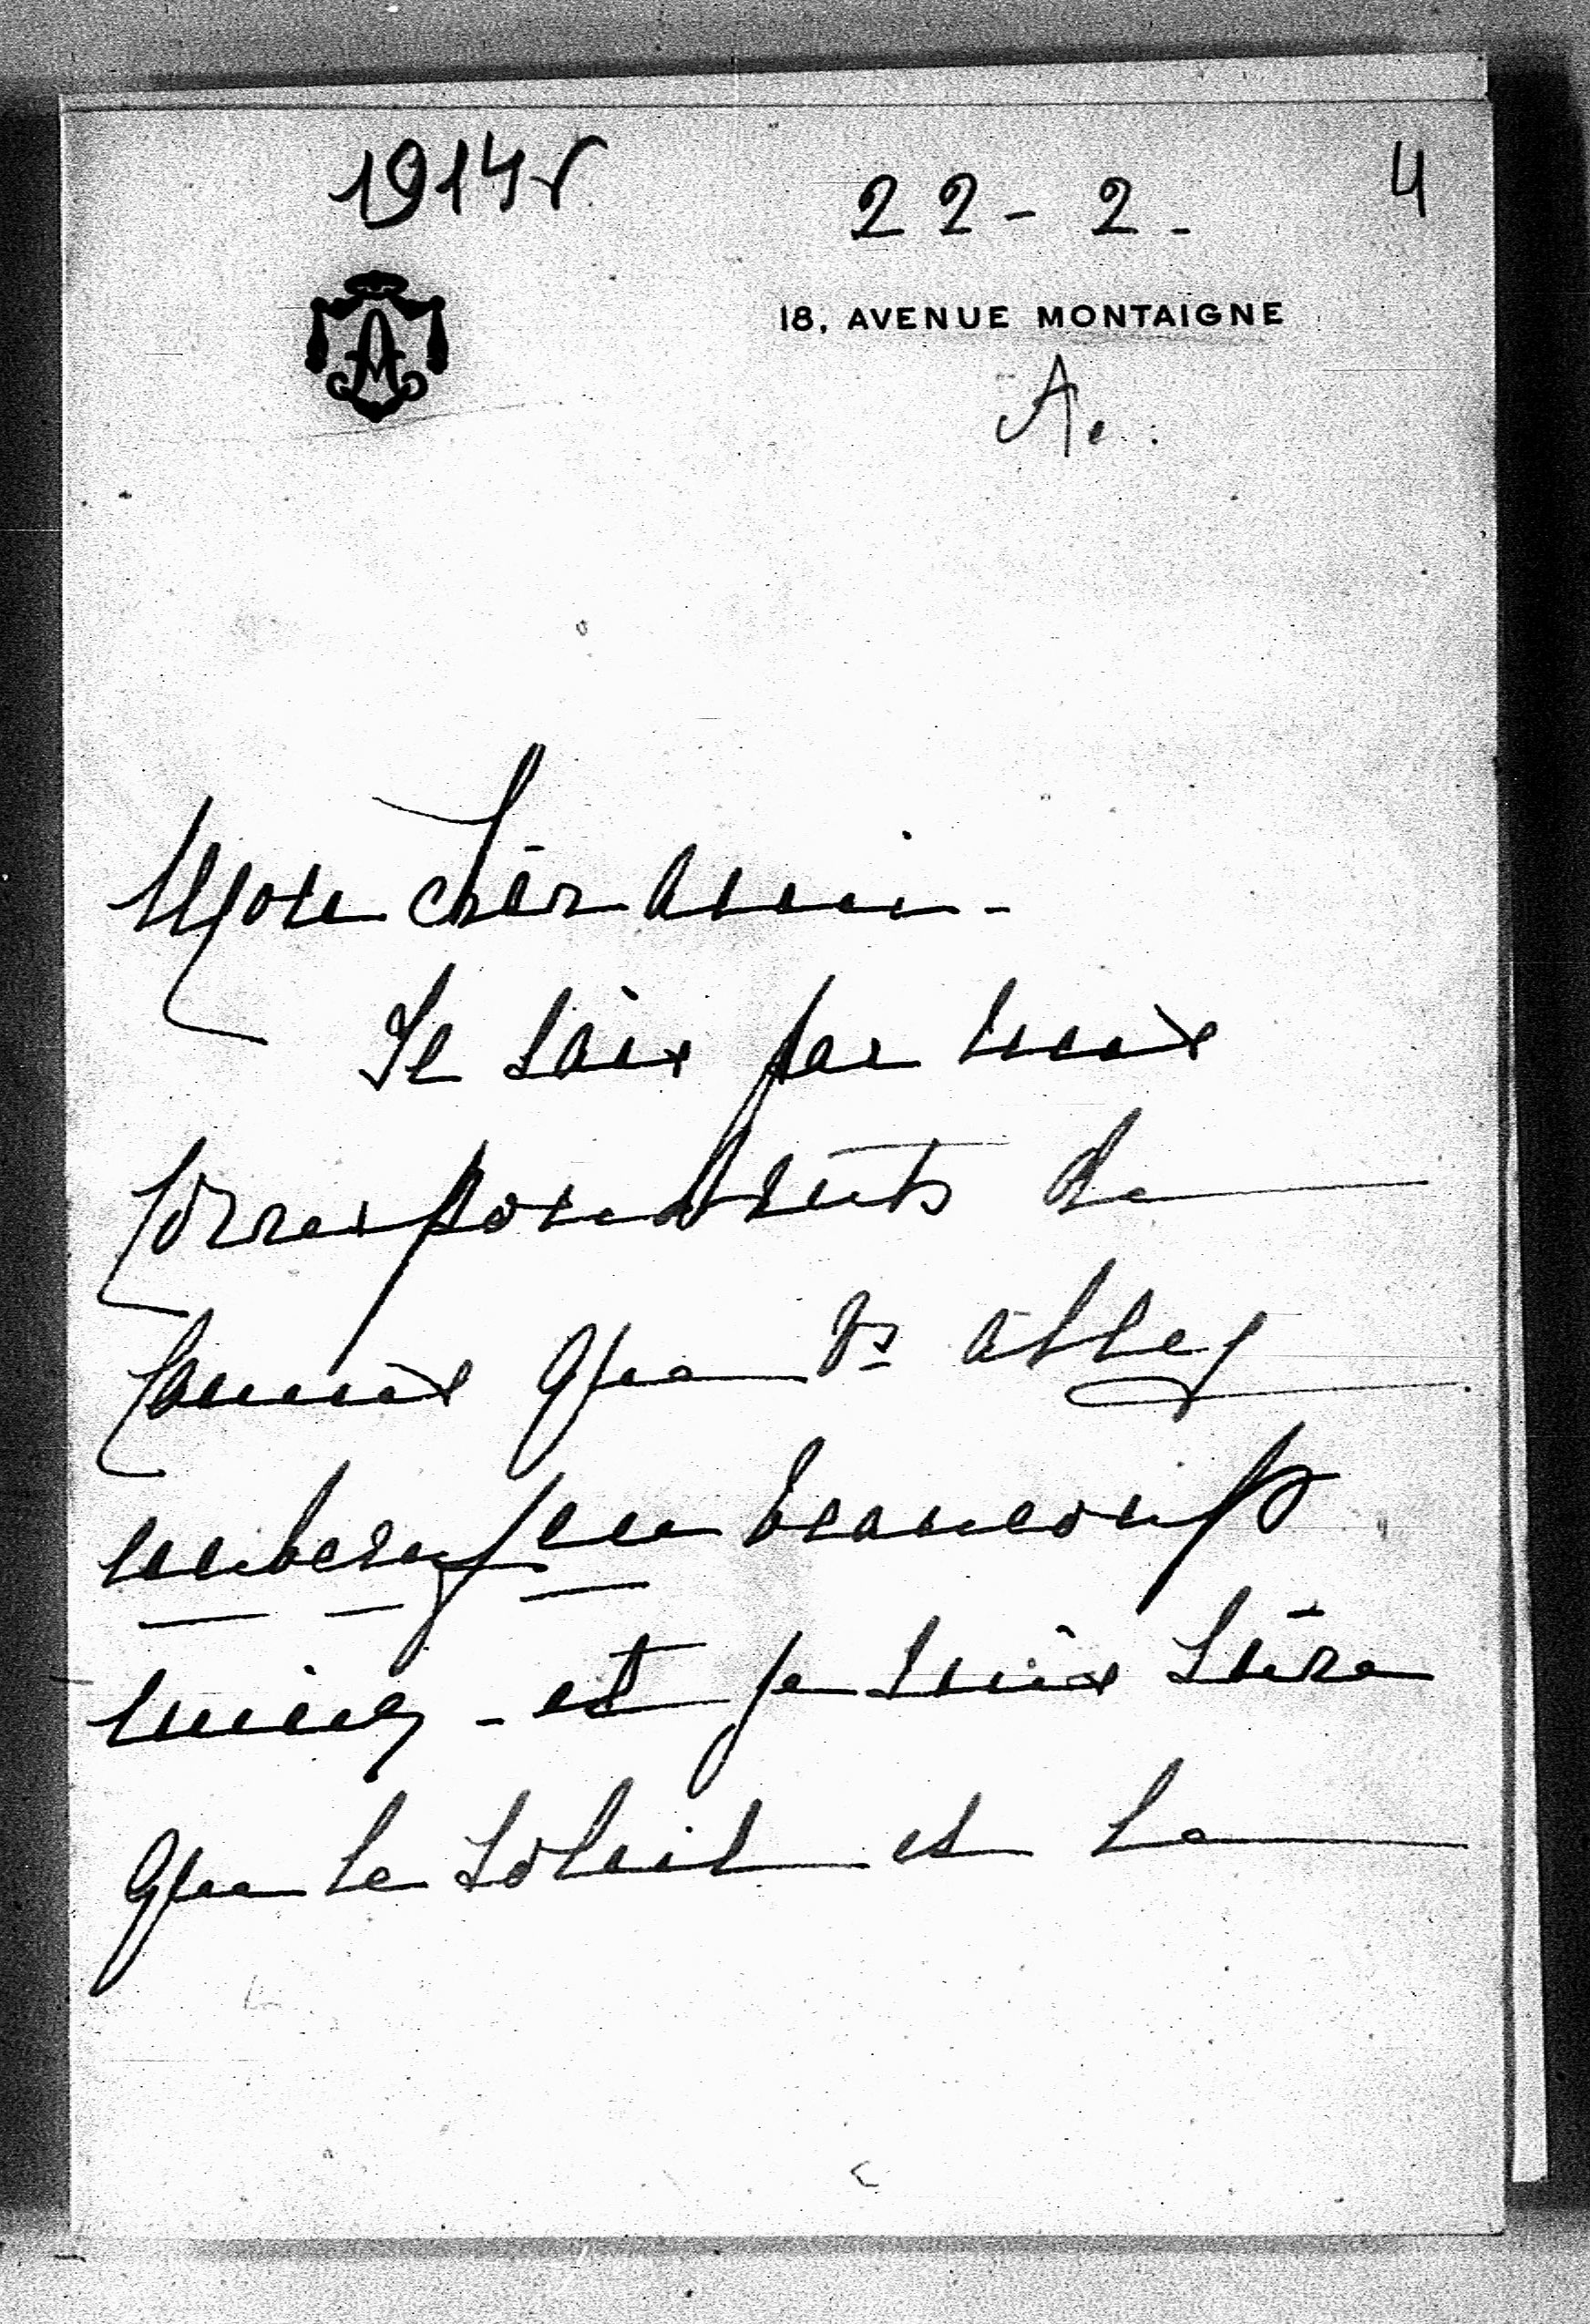 1914 r
22 - 2 -
4
18, AVENUE MONTAIGNE
A.
Mon cher ami -
Je sais par mes
correspondants de
Cannes que vs allez
beaucoup
mieux - et je suis sûre
que le soleil et le